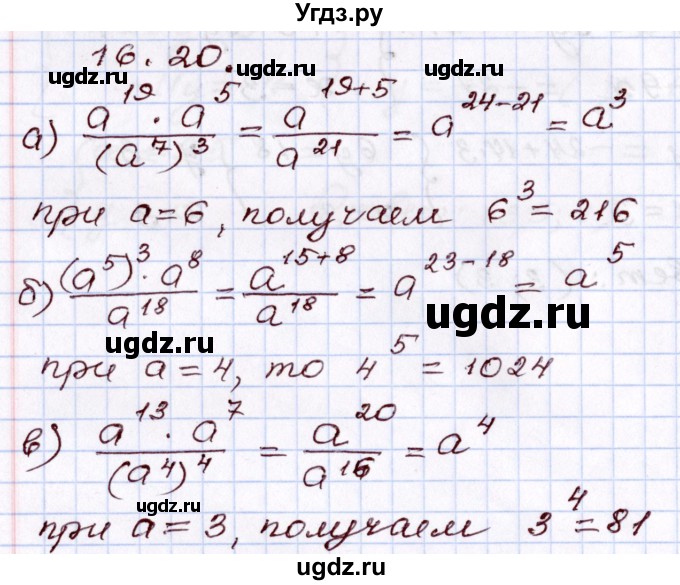 Угдз.ру
16.20.
ugdz.ru ugdz.ru
а) (a^19 · a^5)/(a^7)^3 = a^(19+5)/a^21 = a^(24-21) = a^3
ugdz.ru ugdz.ru
при a=6, получаем 6^3 = 216
ugdz.ru ugdz.ru
б) ((a^5)^3 · a^8)/a^18 = a^(15+8)/a^18 = a^(23-18) = a^5
ugdz.ru
ugdz.ru
при a=4, то 4^5 = 1024
ugdz.ru ugdz.ru
в) (a^13 · a^7)/(a^4)^4 = a^20/a^16 = a^4
ugdz.ru
при a=3, получаем 3^4 = 81
ugdz.ru ugdz.ru